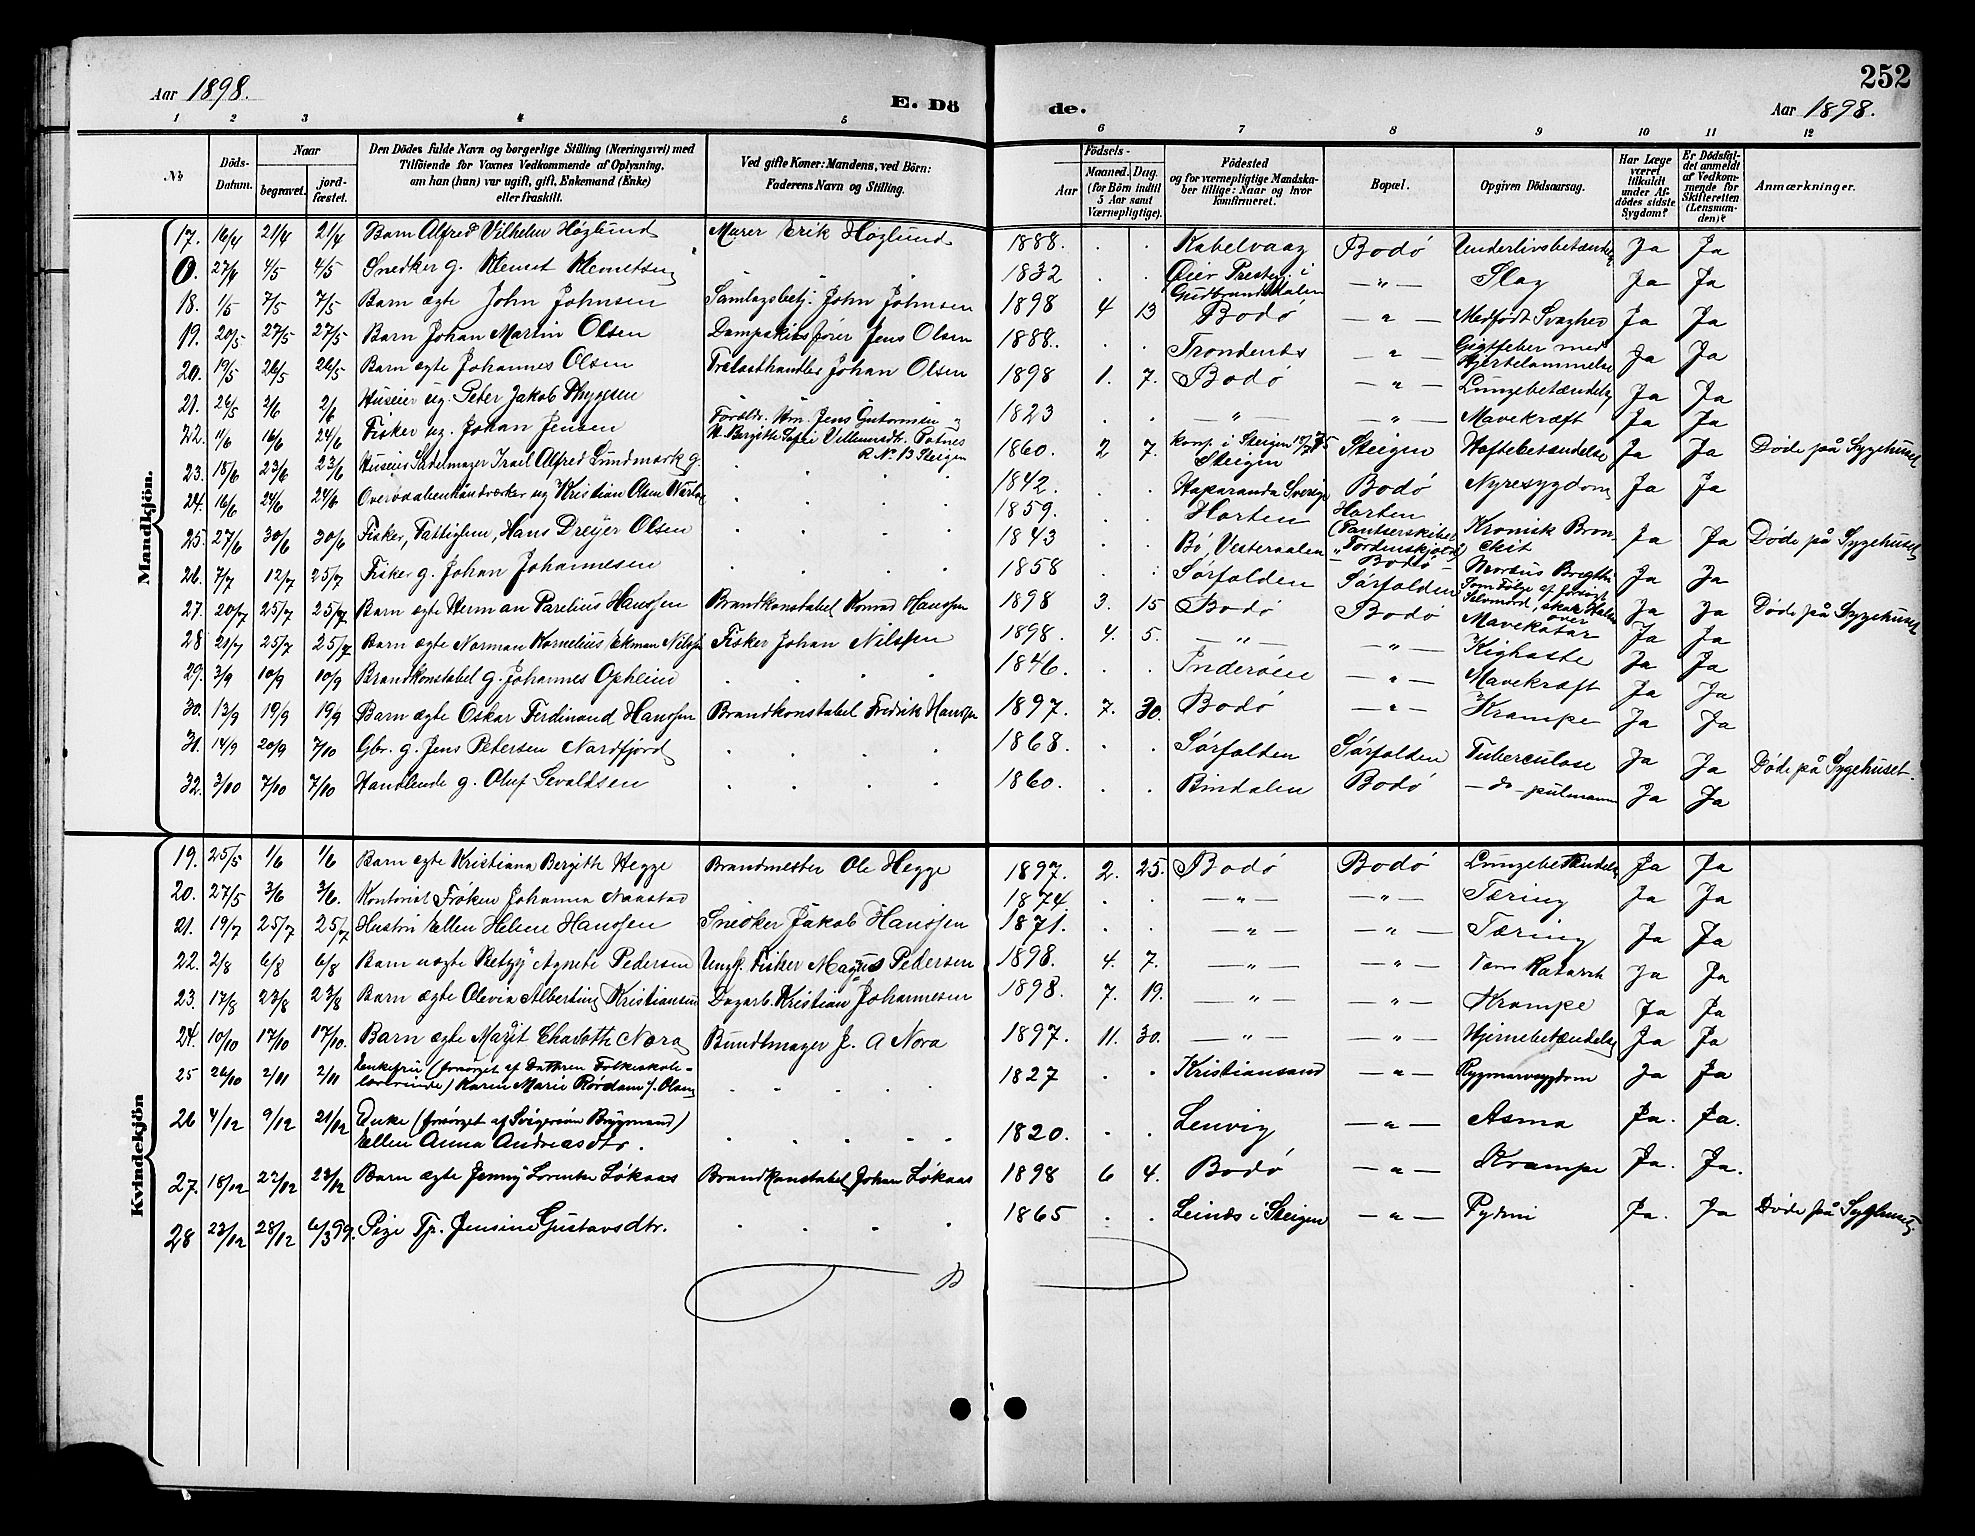 252
Aar 1898. E. Dö de. Aar 1898.
1 2 3 4 5 6 7 8 9 10 11 12
No Döds-Datum. Naar begravet. jordfæstet. Den Dödes fulde Navn og borgerlige Stilling (Næringsvei) med Tilföiende for Voxnes Vedkommende af Oplysning, om han (hun) var ugift, gift, Enkemand (Enke) eller fraskilt. Ved gifte Koner: Mandens, ved Börn: Faderens Navn og Stilling. Födsels- Aar Maaned. Dag. (for Börn indtil 5 Aar samt Værnepligtige). Födested og for værnepligtige Mandskaber tillige: Naar og hvor konfirmeret. Bopæl. Opgiven Dödsaarsag. Har Læge været tilkaldt under Afdödes sidste Sygdom? Er Dödsfaldet anmeldt af Vedkommende for Skifteretten (Lensmanden)? Anmærkninger.
Mandkjön.
17. 16/4 21/4 21/4 Barn Alfred Vilhelm Høglund Murer Erik Høglund 1888. . . Kabelvaag Bodø Underlivsbetændelse Ja Ja
0. 27/4 4/5 4/5 Snedker g. Klemet Klemetsen 1832 . . Øier Prestegj. i Gudbrandsdalen —"— Slag Ja Ja
18. 1/5 7/5 7/5 Barn ægte John Johnsen Samlagsbetj. John Johnsen 1898 4 13 Bodø —"— Medfødt Svaghed Ja Ja
19. 20/5 27/5 27/5 Barn Johan Martin Olsen Dampskibsfører Jens Olsen 1888. . . Trondenes —"— Gigtfeber med Hjertelammelse Ja Ja
20. 19/5 26/5 26/5 Barn ægte Johannes Olsen Trælasthandler Johan Olsen 1898 1. 7. Bodø —"— Lungebetændelse Ja Ja
21. 26/5 2/6 2/6 Huseier ug. Peter Jakob Thygesen 1823 . . —"— —"— Mavekræft Ja Ja
22. 11/6 16/6 24/6 Fisker ug. Johan Jensen Forældr. Jens Guttormsen og H. Bergitte Sofie Villumsdtr. R. Nr. 13 Steigen 1860. 2 7. konf. i Steigen Steigen Steigen Hoftebetændelse Ja Ja Døde på Sygehuset
23. 18/6 23/6 23/6 Huseier Sadelmager Irael Alfred Lundmark g. . . . 1842. . . Haparanda Sverige Bodø Nyresygdom Ja Ja
24. 16/6 24/6 24/6 Overvaabenhåndværker ug Kristian Olsen . . . 1859. . . Horten Horten (Pantserskibet "Tordenskjold) Kronisk Bronchit Ja Ja Døde på Sygehuset
25. 27/6 30/6 30/6 Fisker, Fattiglem, Hans Dreyer Olsen . . . 1843 . . Bø, Vesteraalen — Bodø —
26. 7/7 12/7 25/7 Fisker g. Johan Johannesen 1858 . . Sørfolden Sørfolden som Følge af forsøgt Selvmord, skar Halsen over Ja Ja Døde på Sygehuset
27. 20/7 25/7 25/7 Barn ægte Herman Parelius Hanssen Brandkonstabel Konrad Hanssen 1898 3. 15 Bodø Bodø Mavekatar Ja Ja
28 21/7 25/7 25/7 Barn ægte Norman Kornelius Ekman Nilssen Fisker Johan Nilssen 1898. 4. 5. —"— —"— Kighoste Ja Ja
29. 3/9 10/9 10/9 Brandkonstabel g. Johannes Opheim . . . 1846. . . Inderøen —"— Mavekræft Ja Ja
30. 13/9 19/9 19/9 Barn ægte Oskar Ferdinand Hanssen Brandkonstabel Fredrik Hanssen 1897. 7. 30. Bodø —"— Krampe Ja Ja
31. 14/9 20/9 7/10 Gbr. g. Jens Petersen Nordfjord . . . 1868. . . Sørfolden Sørfolden Tuberculose Ja Ja Døde på Sygehuset.
32. 3/10 7/10 7/10 Handlende g. Oluf Sevaldsen . . . 1860. . . Bindalen Bodø — do — pulmonum Ja Ja
Kvindekjön
19. 25/5 1/6 1/6 Barn ægte Kristiana Bergith Hegge Brandmester Ole Hegge 1897. 2. 25. Bodø Bodø Lungebetændelse Ja Ja
20. 27/5 3/6 3/6. Kontorist Frøken Johanna Naastad 1874. . . —"— —"— Tæring Ja Ja
21. 19/7 25/7 25/7 Hustru Ellen Helene Hanssen Snedker Jakob Hanssen 1871. . . —"— —"— Tæring Ja Ja
22. 2/8 6/8 6/8 Barn uægte Betzy Agnete Pedersen Ungk. Fisker Magnus Pedersen 1898. 4. 7. —"— —"— Tarm Katarrh Ja Ja
23. 17/8 23/8 23/8 Barn ægte Olevia Albertine Kristiansen Dagarb. Kristian Johannesen 1898. 7. 19. —"— —"— Krampe Ja Ja
24. 10/10 17/10 17/10. Barn ægte Margit Charloth Nora Bundtmager J. A Nora 1897. 11. 30. —"— —"— Hjernebetændelse Ja Ja
25 26/10 2/11 2/11 Enkefru (forsørget af Datteren Folkeskolelærerinde) Karen Marie Rørdam f. Olsen . . . . 1827 . . Kristiansand —"— Rygmarvsygdom Ja Ja
26 4/12 9/12 21/12 Enke (forsørget af Svigersøn Brygmand) Ellen Anna Andreasdtr. . . . . . 1820. . . Lenvig —"— Asma Ja. Ja.
27. 18/12 22/12 22/12 Barn ægte Jenny Lorentse Løkaas Brandkonstabel Johan Løkaas 1898 6 4. Bodø —"— Krampe Ja. Ja.
28 23/12 28/12 6/3 99. Pige Tj. Jensine Gustavsdtr. . . . . 1865 . . Leines i Steigen —"— Pydmi Ja. Ja Døde på Sygehuset.